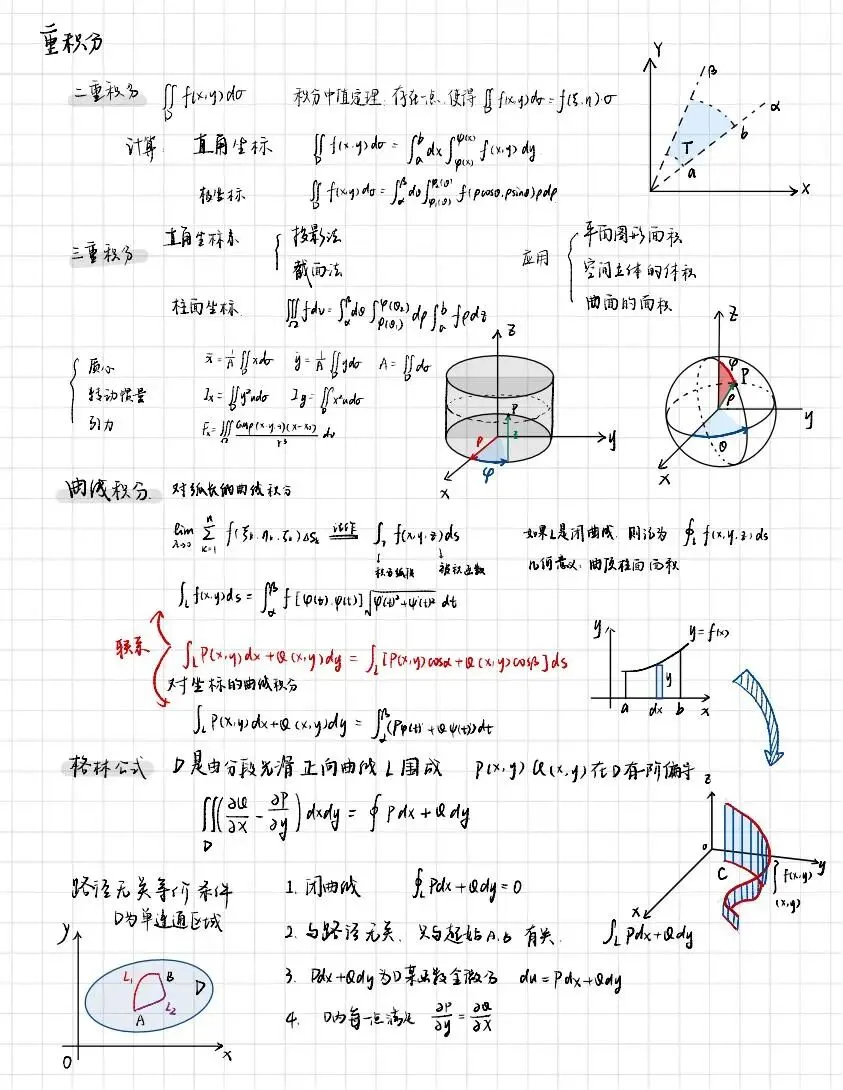 重积分
二重积分 ∬_D f(x,y)dσ 积分中值定理. 存在一点, 使得 ∬_D f(x,y)dσ = f(ξ,η)·σ
计算: 直角坐标 ∬_D f(x,y)dσ = ∫_a^b dx ∫_{φ(x)}^{ψ(x)} f(x,y)dy
极坐标 ∬_D f(x,y)dσ = ∫_α^β dθ ∫_{φ₁(θ)}^{φ₂(θ)} f(ρcosθ, ρsinθ)ρdρ
Y β α b T a X
三重积分 直角坐标系 { 投影法
截面法
应用 { 平面图形面积
空间立体的体积
曲面的面积
柱面坐标 ∭_Ω fdv = ∫_α^β dθ ∫_{φ(θ₁)}^{φ(θ₂)} dρ ∫_a^b fρdz
{ 质心 x̄ = 1/A ∬xdσ ȳ = 1/A ∬ydσ A = ∬dσ
转动惯量 Ix = ∬y²udσ Iy = ∬x²udσ
引力
z P ρ z φ x y
z φ P ρ θ x y
曲线积分. 对弧长的曲线积分
lim_{λ→0} Σ_{k=1}^n f(ξₖ, ηₖ, ζₖ)ΔSₖ 记作 ∫ f(x,y,z)ds 如果L是闭曲线, 则记为 ∮_L f(x,y,z)ds
积分弧段 被积函数 几何意义: 曲顶柱面面积
∫_L f(x,y)ds = ∫_α^β f[φ(t),ψ(t)]√(φ'(t)²+ψ'(t)²) dt
联系 ∫_L P(x,y)dx+Q(x,y)dy = ∫_L [P(x,y)cosα+Q(x,y)cosβ]ds
对坐标的曲线积分
∫_L P(x,y)dx+Q(x,y)dy = ∫_α^β (Pφ'(t)+Qψ'(t))dt
y y=f(x) y a dx b x
格林公式 D是由分段光滑正向曲线L围成 P(x,y) Q(x,y)在D有一阶偏导
∬_D (∂Q/∂x - ∂P/∂y) dxdy = ∮ Pdx+Qdy
z o C y f(x,y) (x,y) x
路径无关等价条件 1. 闭曲线 ∮_L Pdx+Qdy=0
D为单连通区域
2. 与路径无关, 只与起始A,B 有关. ∫_L Pdx+Qdy
3. Pdx+Qdy为D某函数全微分 du=Pdx+Qdy
4. D内每一点满足 ∂P/∂y = ∂Q/∂x
y L₁ B D L₂ A O x